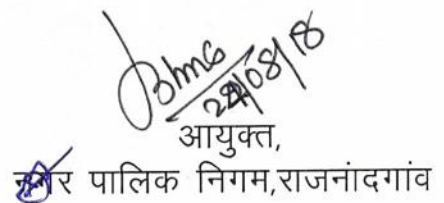 24/08/18
आयुक्त,
नगर पालिक निगम,राजनांदगांव